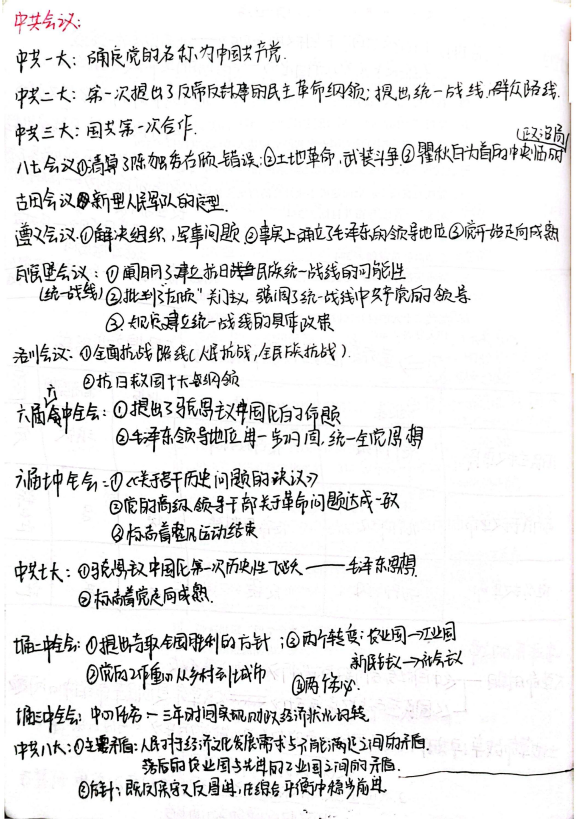 中共会议:
中共一大: 确定党的名称,为中国共产党.
中共二大: 第一次提出了反帝反封建的民主革命纲领; 提出统一战线,群众路线.
中共三大: 国共第一次合作.
(政治局)
八七会议①清算了陈独秀右倾错误;②土地革命,武装斗争③瞿秋白为首的中央临时
古田会议 新型人民军队的定型.
遵义会议:①解决组织,军事问题 ②事实上确立了毛泽东的领导地位 ③党开始走向成熟
瓦窑堡会议: ①阐明了建立抗日 民族统一战线的可能性
(统一战线) ②批判了"左倾"关门主义 强调了统一战线中共党的领导
③ 建立统一战线的具体政策
洛川会议: ①全面抗战路线(人民抗战,全民族抗战).
②抗日救国十大纲领
六届六中全会: ①提出了马克思主义中国化的命题
②毛泽东领导地位进一步巩固,统一全党思想
六届七中全会:①《关于若干历史问题的决议》
②党的高级领导干部关于革命问题达成一致
③标志着整风运动结束
中共七大: ①马克思主义中国化第一次历史性飞跃——毛泽东思想.
②标志着党走向成熟.
七届二中全会: ①提出夺取全国胜利的方针; ③两个转变: 农业国→工业国
新民主主义→社会主义
②党的工作重心从乡村到城市
④两个务必.
七届三中全会: 中心任务: 三年时间实现财政经济状况好转
中共八大: ①主要矛盾: 人民对于经济文化发展需求与不能满足之间的矛盾.
落后的农业国与先进的工业国之间的矛盾.
②方针: 既反保守又反冒进,在综合平衡中稳步前进.